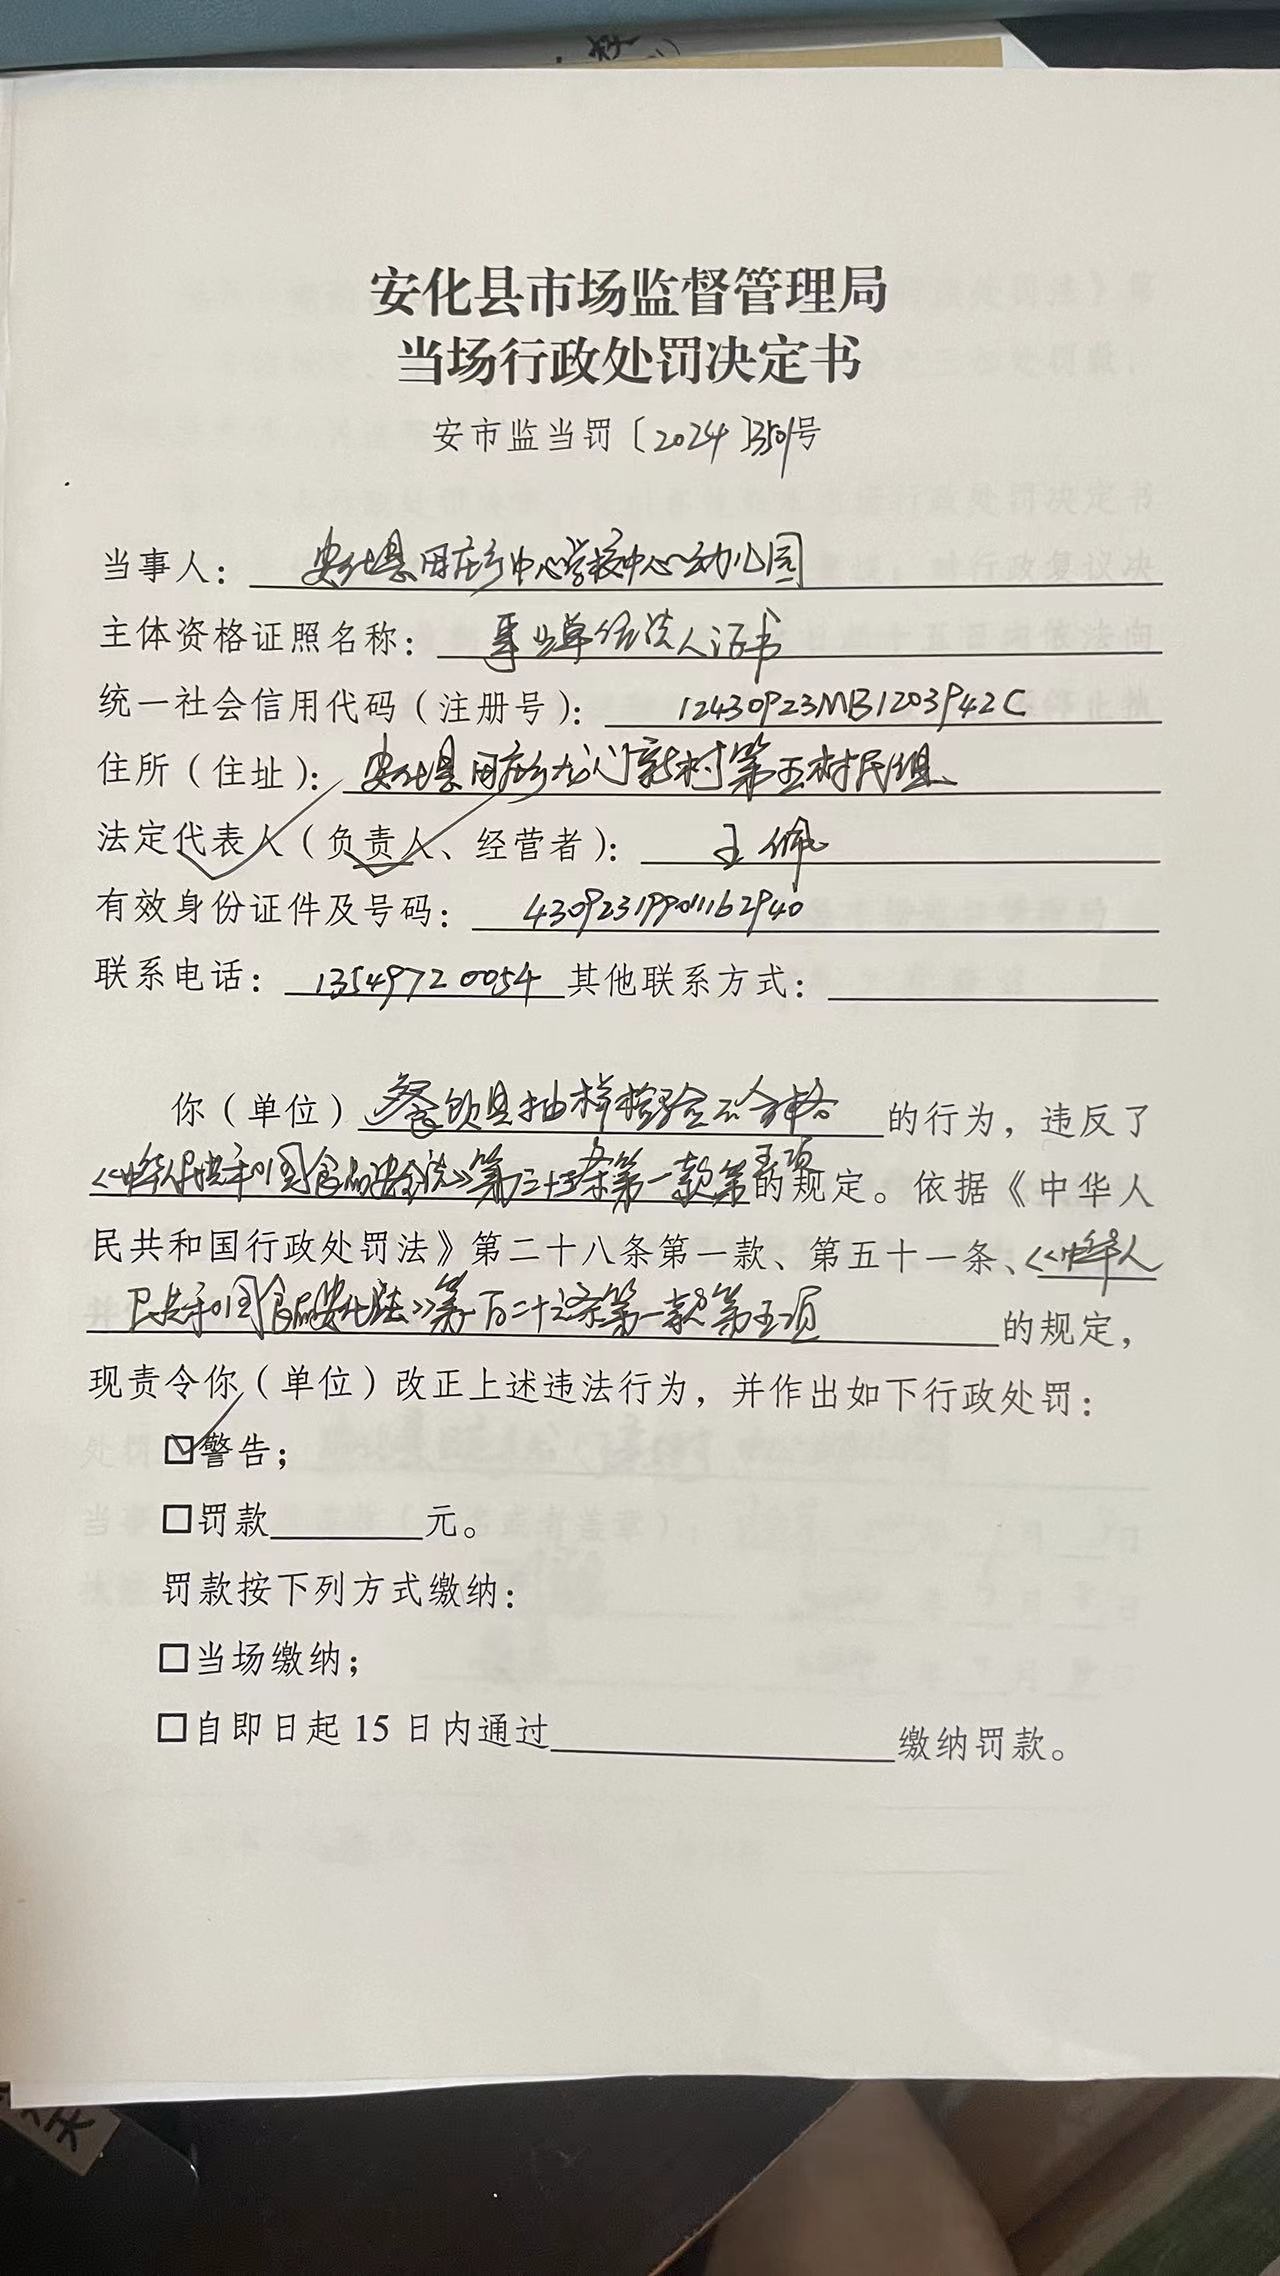 安化县市场监督管理局
当场行政处罚决定书
安市监当罚〔2024〕3501号
当事人：安化县田庄乡中心学校中心幼儿园
主体资格证照名称：事业单位法人证书
统一社会信用代码（注册号）：12430923MB1203942C
住所（住址）：安化县田庄乡龙门新村第五村民组
法定代表人（负责人、经营者）：王佩
有效身份证件及号码：
联系电话：13549720054 其他联系方式：
你（单位）餐饮具抽样检验不合格的行为，违反了
《中华人民共和国食品安全法》第三十三条第一款第五项的规定。依据《中华人
民共和国行政处罚法》第二十八条第一款、第五十一条、《中华人
民共和国食品安全法》第一百二十六条第一款第五项的规定，
现责令你（单位）改正上述违法行为，并作出如下行政处罚：
☑警告；
□罚款 元。
罚款按下列方式缴纳：
□当场缴纳；
□自即日起 15 日内通过 缴纳罚款。